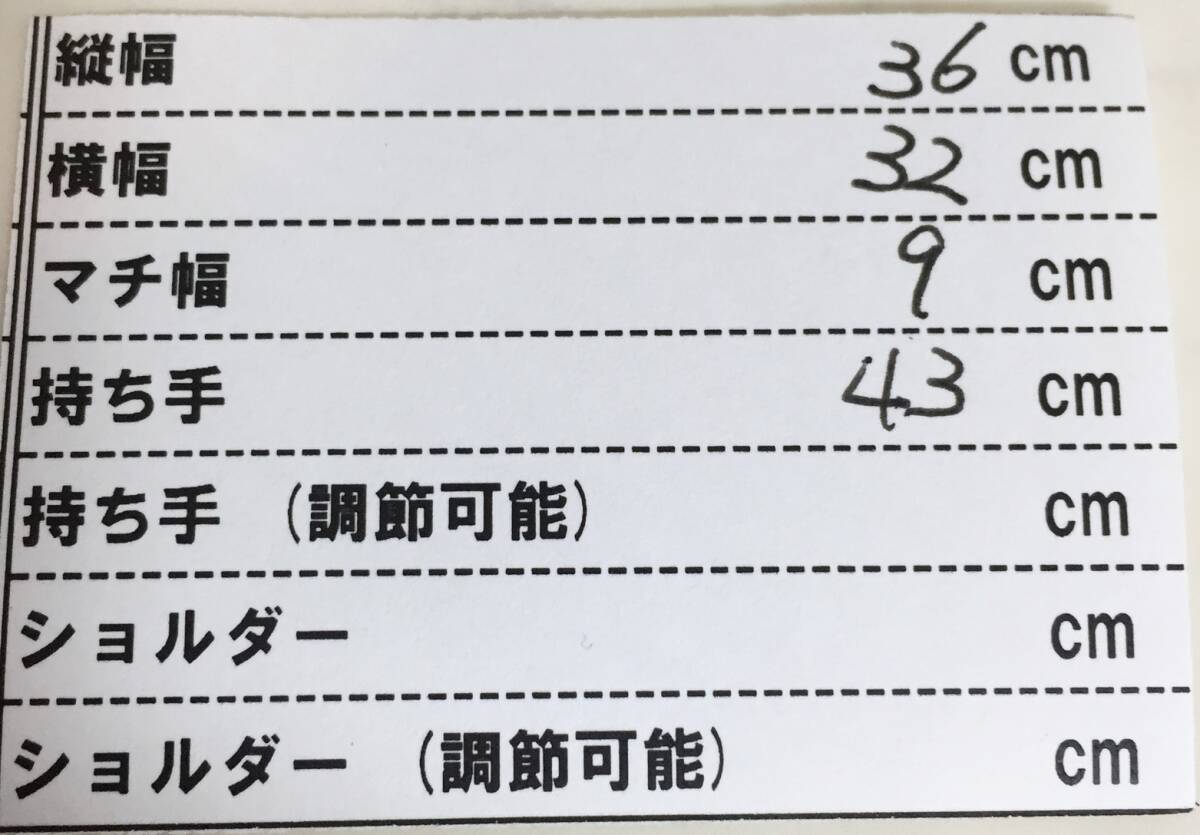 縦幅 36 cm
横幅 32 cm
マチ幅 9 cm
持ち手 43 cm
持ち手 (調節可能) cm
ショルダー cm
ショルダー (調節可能) cm